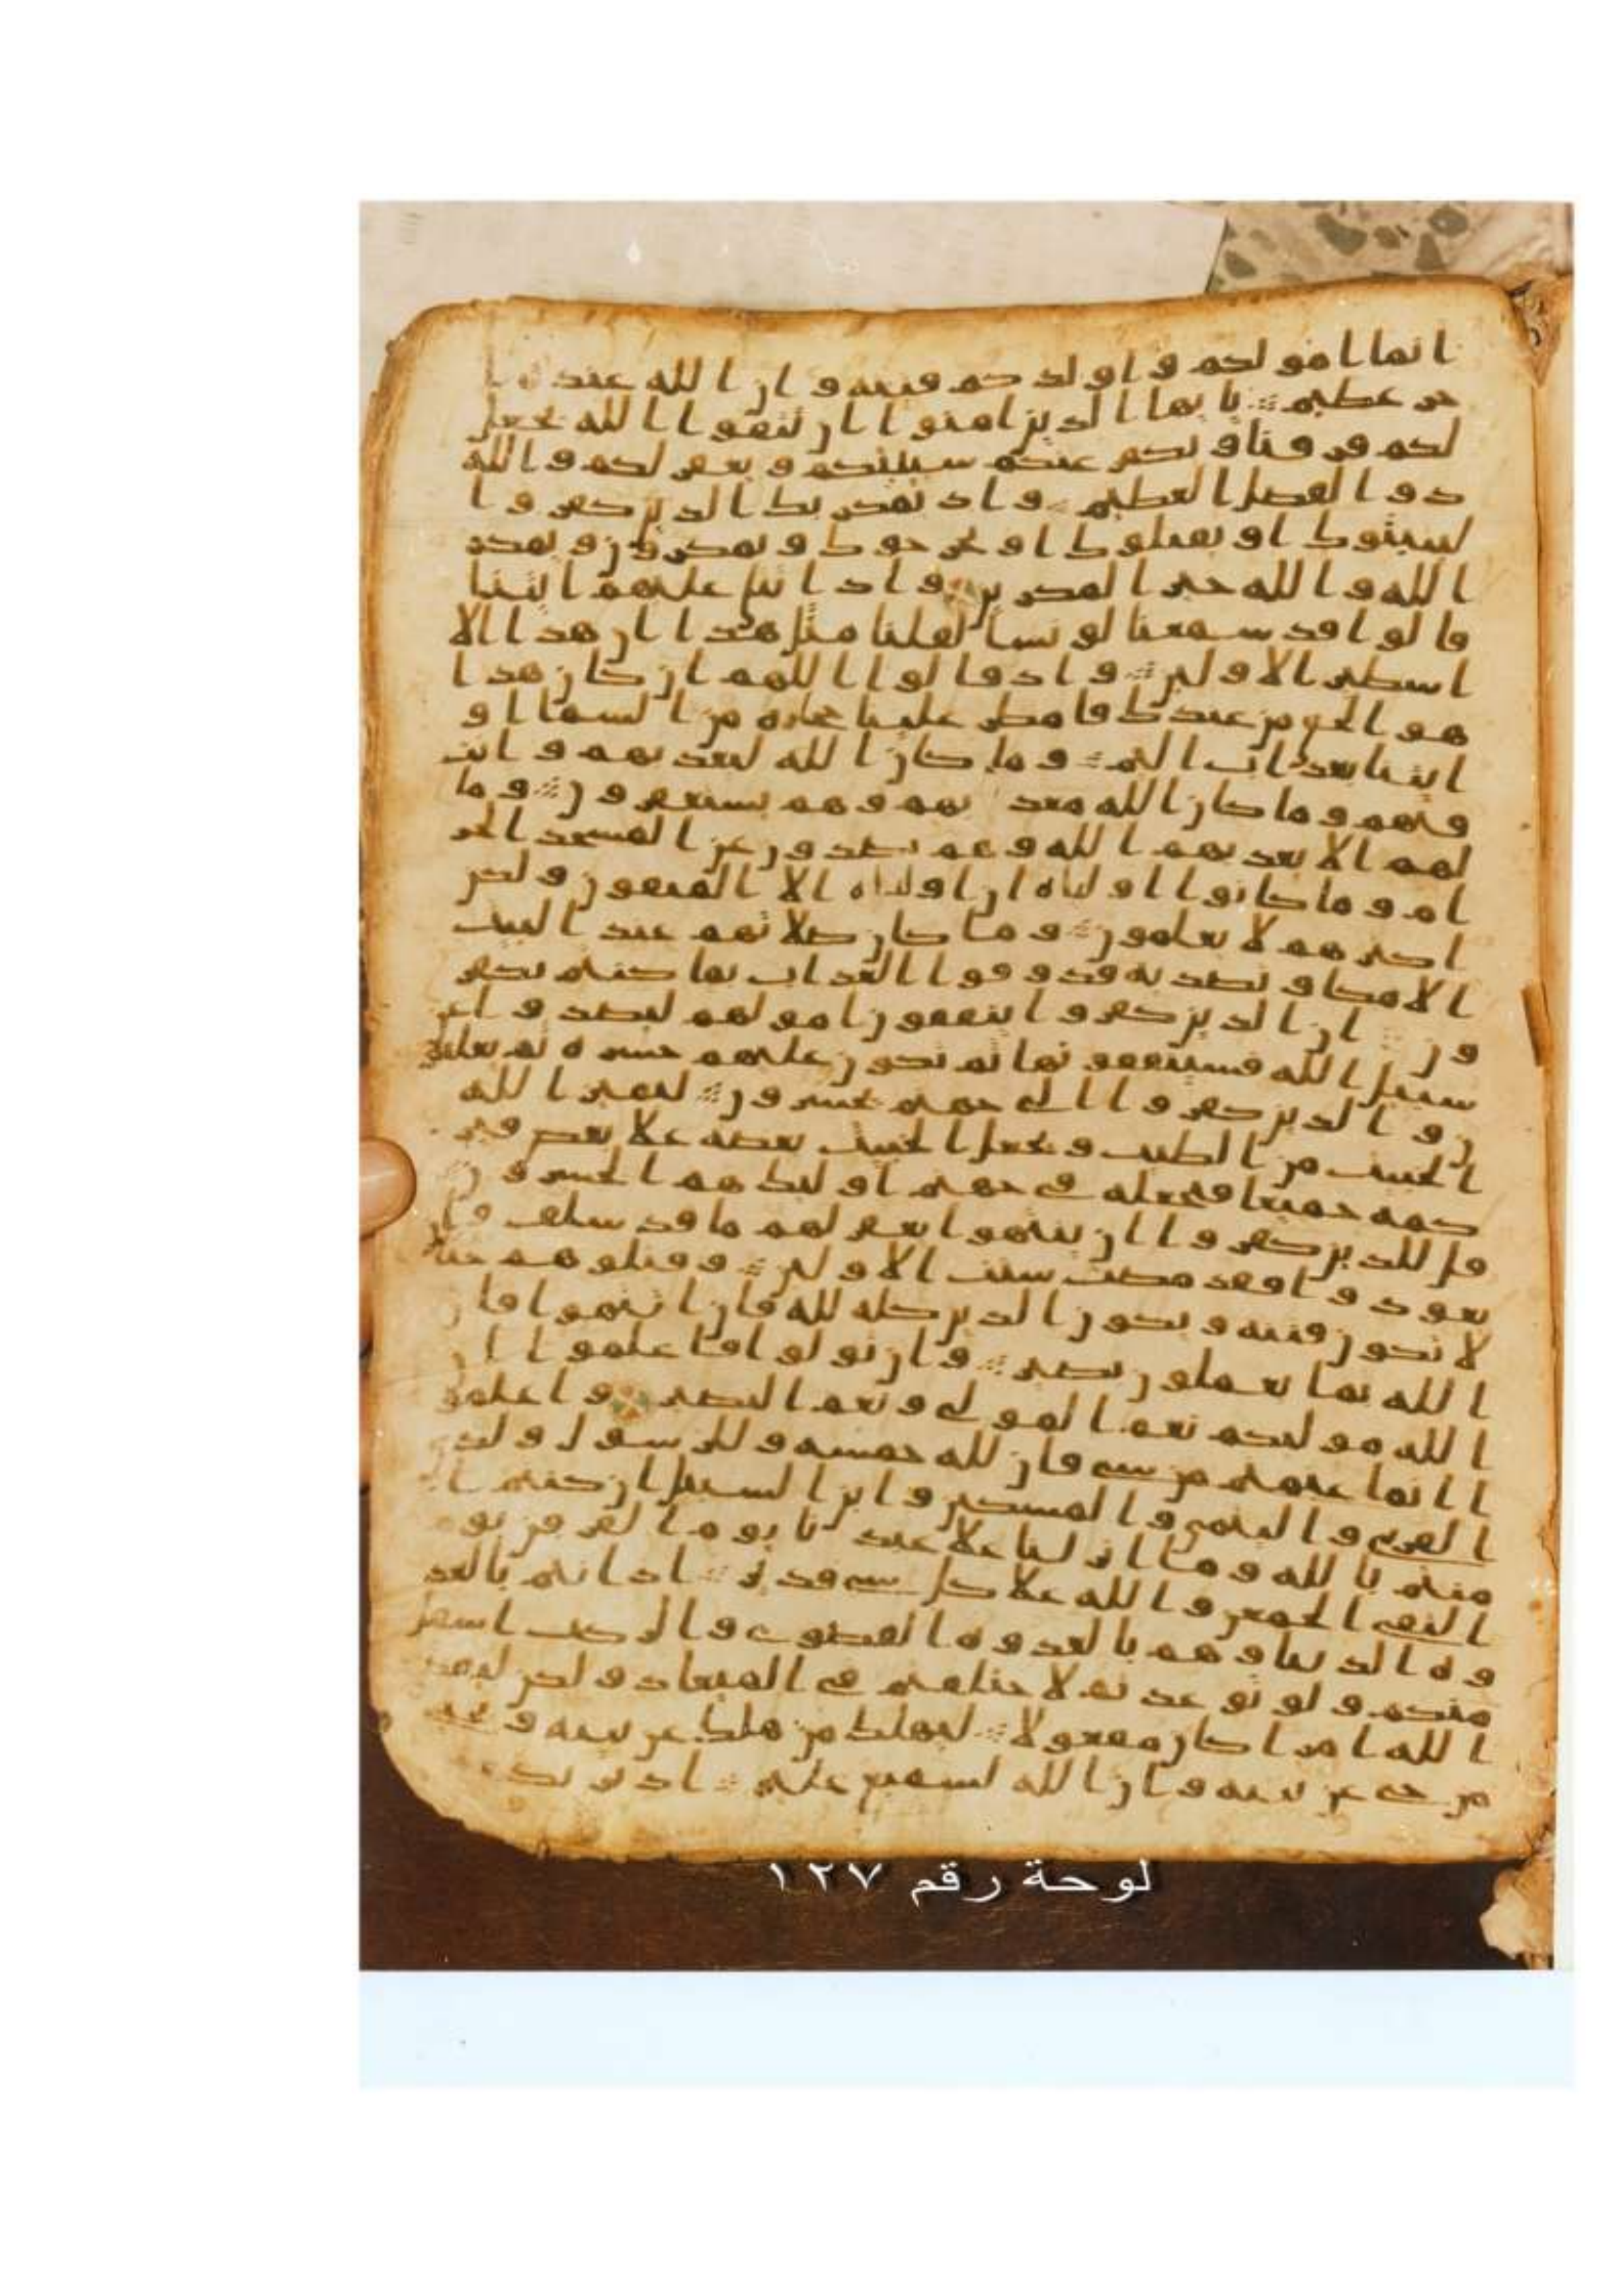 انما امولكم و اولدكم فتنه و ان الله عنده ا
جر عظيم يا يها الذين امنوا ان تتقوا الله يجعل
لكم فرقنا و يكفر عنكم سييتكم و يغفر لكم و الله
ذو الفضل العظيم و اذ يمكر بك الذين كفروا
ليثبتوك او يقتلوك او يخرجوك و يمكرون و يمكر
الله و الله خير المكرين و اذا تتلى عليهم ايتنا
قالوا قد سمعنا لو نشا لقلنا مثل هذا ان هذا الا
اسطير الاولين و اذ قالوا اللهم ان كان هذا
هو الحق من عندك فامطر علينا حجاره من السما او
ايتنا بعذاب اليم و ما كان الله ليعذبهم و انت
فيهم و ما كان الله معذبهم و هم يستغفرون و ما
لهم الا يعذبهم الله و هم يصدون عن المسجد الحر
ام و ما كانوا اولياه ان اولياه الا المتقون و لكن
اكثرهم لا يعلمون و ما كان صلاتهم عند البيت
الا مكا و تصديه فذوقوا العذاب بما كنتم تكفر
ون ان الذين كفروا ينفقون امولهم ليصدوا عن
سبيل الله فسينفقونها ثم تكون عليهم حسره ثم يغلبو
ن و الذين كفروا الى جهنم يحشرون ليميز الله
الخبيث من الطيب و يجعل الخبيث بعضه علا بعض فير
كمه جميعا فيجعله في جهنم اوليك هم الخسرون
قل للذين كفروا ان ينتهوا يغفر لهم ما قد سلف و ان
يعودوا فقد مضت سنت الاولين و قتلوهم حتا
لا تكون فتنه و يكون الدين كله لله فان انتهوا فان
الله بما يعملون بصير و ان تولوا فاعلموا ان
الله موليكم نعم المولى و نعم النصير و اعلمو
ا انما غنمتم من شي فان لله خمسه و للرسول و لذي
القربى و اليتمى و المسكين و ابن السبيل ان كنتم ا
منتم بالله و ما انزلنا علا عبدنا يوم الفرقن يوم
التقى الجمعن و الله علا كل شي قدير اذ انتم بالعد
وه الدنيا و هم بالعدوه القصوى و الركب اسفل
منكم و لو توعدتم لاختلفتم في الميعاد و لكن ليقضي
الله امرا كان مفعولا ليهلك من هلك عن بينه و يحيى
من حي عن بينه و ان الله لسميع عليم اذ يريك
لوحة رقم ١٢٧